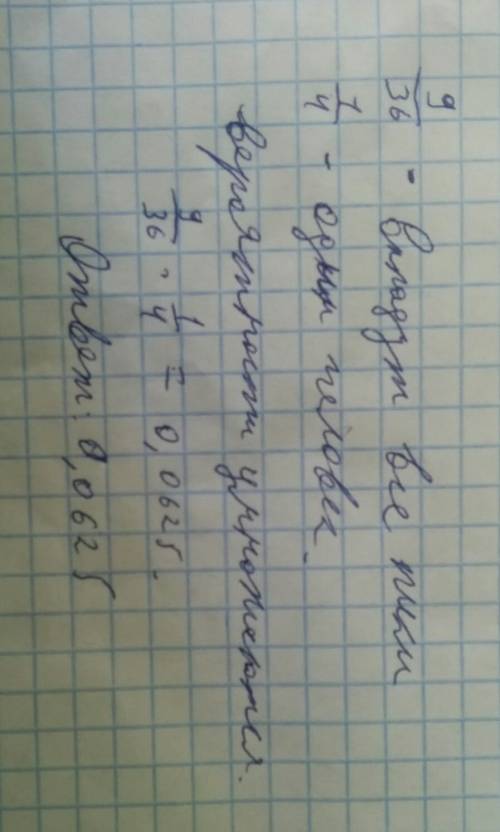 9/36 - выпадут все пики
1/4 - один человек.
вероятности умножаются.
9/36 · 1/4 = 0,0625.
Ответ: 0,0625